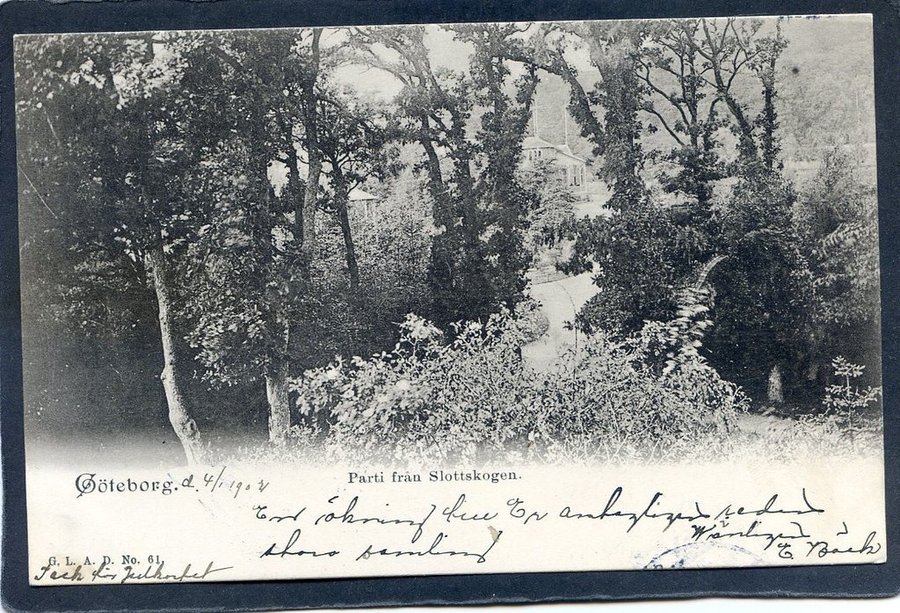 Göteborg. d. 4/1 1902
Parti från Slottskogen.
En ökning till Er antagligen redan
stora samling
Vänligen
E Bäck
G. L. A. D. No. 61
Tack för Julkortet